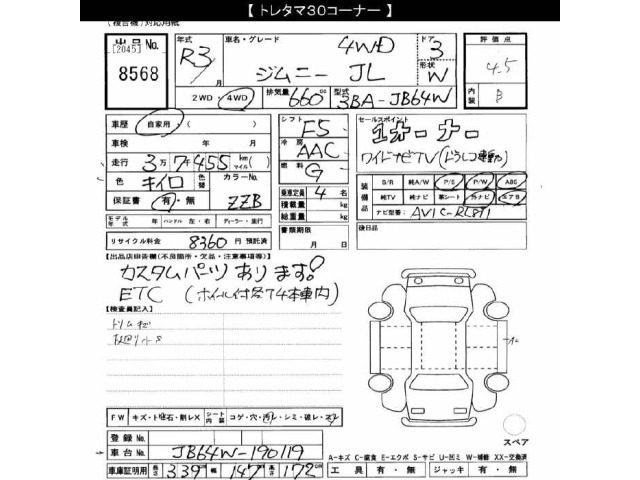 【 トレタマ30コーナー 】
(複合機)対応用紙
出品No.
[2045]
8568
年式 R3 月
車名・グレード 4WD
ジムニー JL
ドア 3
形状 W
評価点 4.5
内装 B
2WD 4WD
排気量 660cc
型式 3BA-JB64W
車歴 自家用・( )
車検 年 月
走行 3万7千455km(マイル)
色 キイロ 色替
カラーNo. ZZB
保証書 有・無
モデル年式 年 ハンドル 左・右 ディーラー・並行
リサイクル料金 8360円 預託済
シフト F5
冷房 AAC
燃料 G
乗車定員 4名
積載量 kg
総重量 kg
書類期限 月 日
セールスポイント
1オーナー
ワイドナビTV(ドラレコ車内)
装備品
S/R 純A/W P/S P/W ABS
純TV 純ナビ 革シート 外ナビ エアB
ナビ型番: AVIC-RL811
後日品
【出品店申告欄(不良箇所・欠品・注意事項等)】
カスタムパーツあります!
ETC (ホイール付タイヤ4本車内)
【検査員記入】
トリムキズ
FW キズ・ト飛石・割レX シート内装 コゲ・穴・汚レ・シミ・破レ・スレ
登録No.
車台No. JB64W-190119
車庫証明用 長さ 339cm 幅 147cm 高さ 172cm
スペア
A-キズ C-腐食 E-エクボ S-サビ U-凹ミ W-補修 XX-交換済
工具 有・無 ジャッキ 有・無